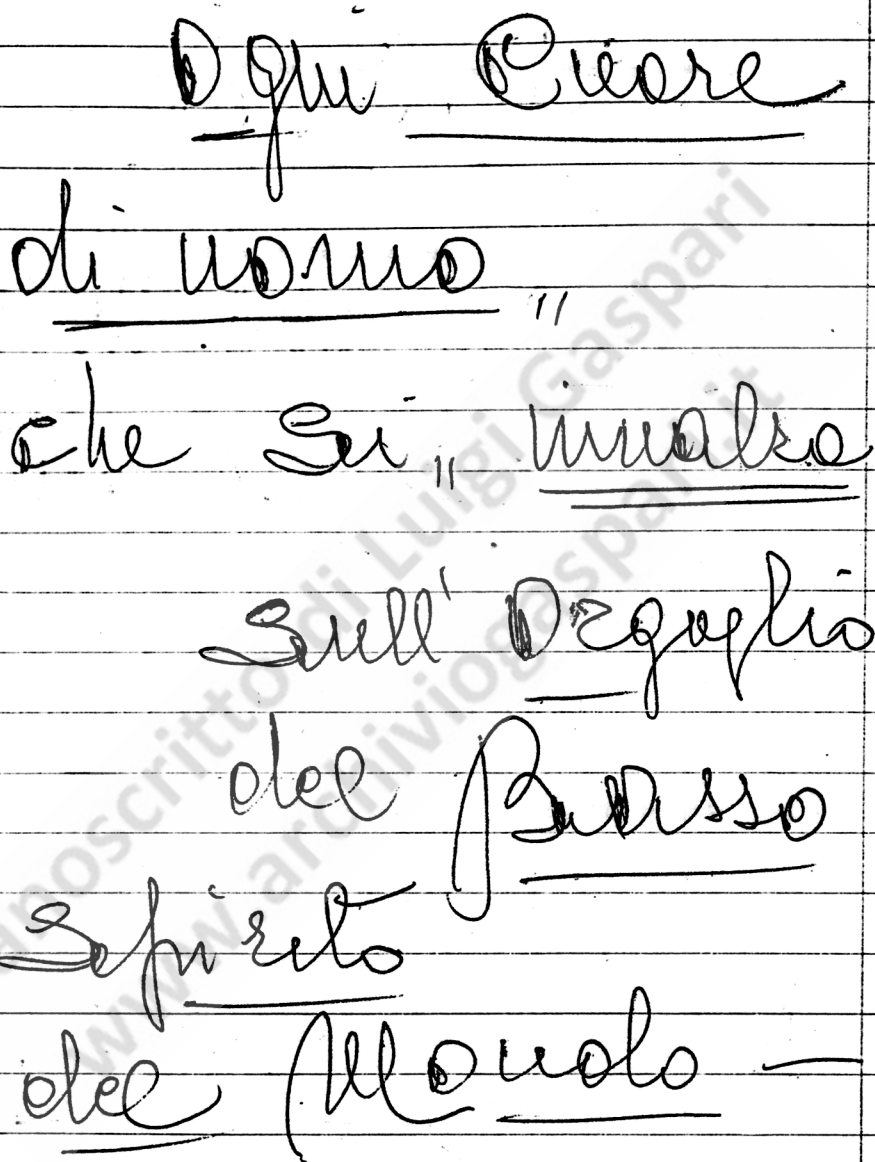 Ogni Cuore
di uomo,,
che si,, innalza
sull'Orgoglio
del
Spirito
del Mondo —
manoscritto di Luigi Gaspari
www.archiviogaspari.it